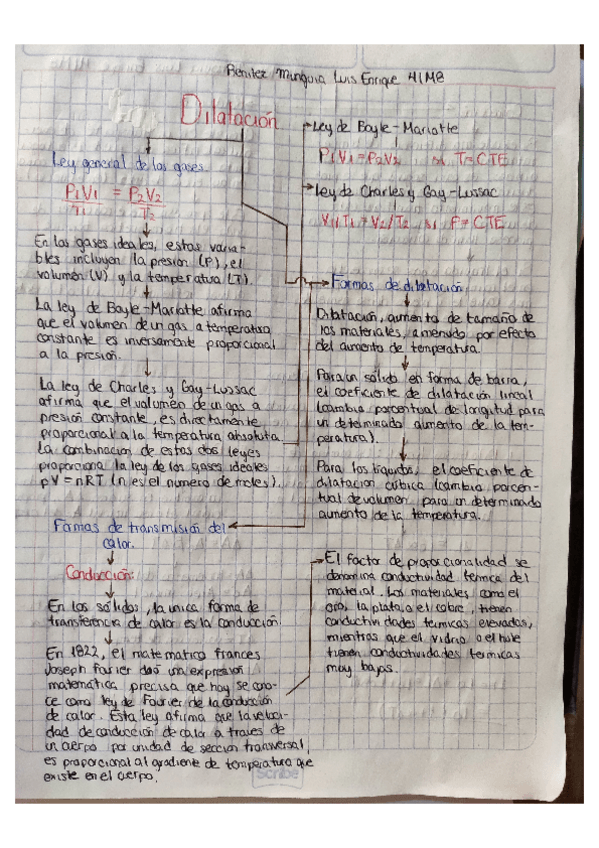 Benitez Munguia Luis Enrique 4IM8
Dilatación
Ley general de los gases.
P1V1 = P2V2
T1 T2
En los gases ideales, estas varia-
bles incluyen la presión (P), el
volumen (V) y la temperatura (T).
La ley de Boyle-Mariotte afirma
que el volumen de un gas a temperatura
constante es inversamente proporcional
a la presión.
La ley de Charles y Gay-Lussac
afirma que el volumen de un gas a
presión constante, es directamente
proporcional a la temperatura absoluta
La combinación de estas dos leyes
proporciona la ley de los gases ideales
pV = nRT (n es el numero de moles).
Ley de Boyle-Mariotte
P1V1=P2V2 si T=CTE
Ley de Charles y Gay-Lussac
V1/T1=V2/T2 si P=CTE
Formas de dilatación
Dilatación, aumento de tamaño de
los materiales, a menudo por efecto
del aumento de temperatura.
Para un sólido en forma de barra,
el coeficiente de dilatación lineal
(cambia porcentual de longitud para
un determinado aumento de la tem-
peratura).
Para los líquidos, el coeficiente de
dilatación cúbica (cambia porcen-
tual de volumen para un determinado
aumento de la temperatura.
Formas de transmisión del
calor.
Conducción:
En los sólidos, la unica forma de
transferencia de calor es la conducción.
En 1822, el matematico frances
Joseph Fourier dió una expresión
matemática precisa que hoy se cono-
ce como ley de Fourier de la conducción
de calor. Esta ley afirma que la veloci-
dad de conducción de calor a traves de
un cuerpo por unidad de sección transversal,
es proporcional al gradiente de temperatura que
existe en el cuerpo.
El factor de proporcionalidad se
denomina conductividad termica del
material. Los materiales como el
oro, la plata o el cobre, tienen
conductividades termicas elevadas,
mientras que el vidrio o el hule
tienen conductividades termicas
muy bajas.
Scribe